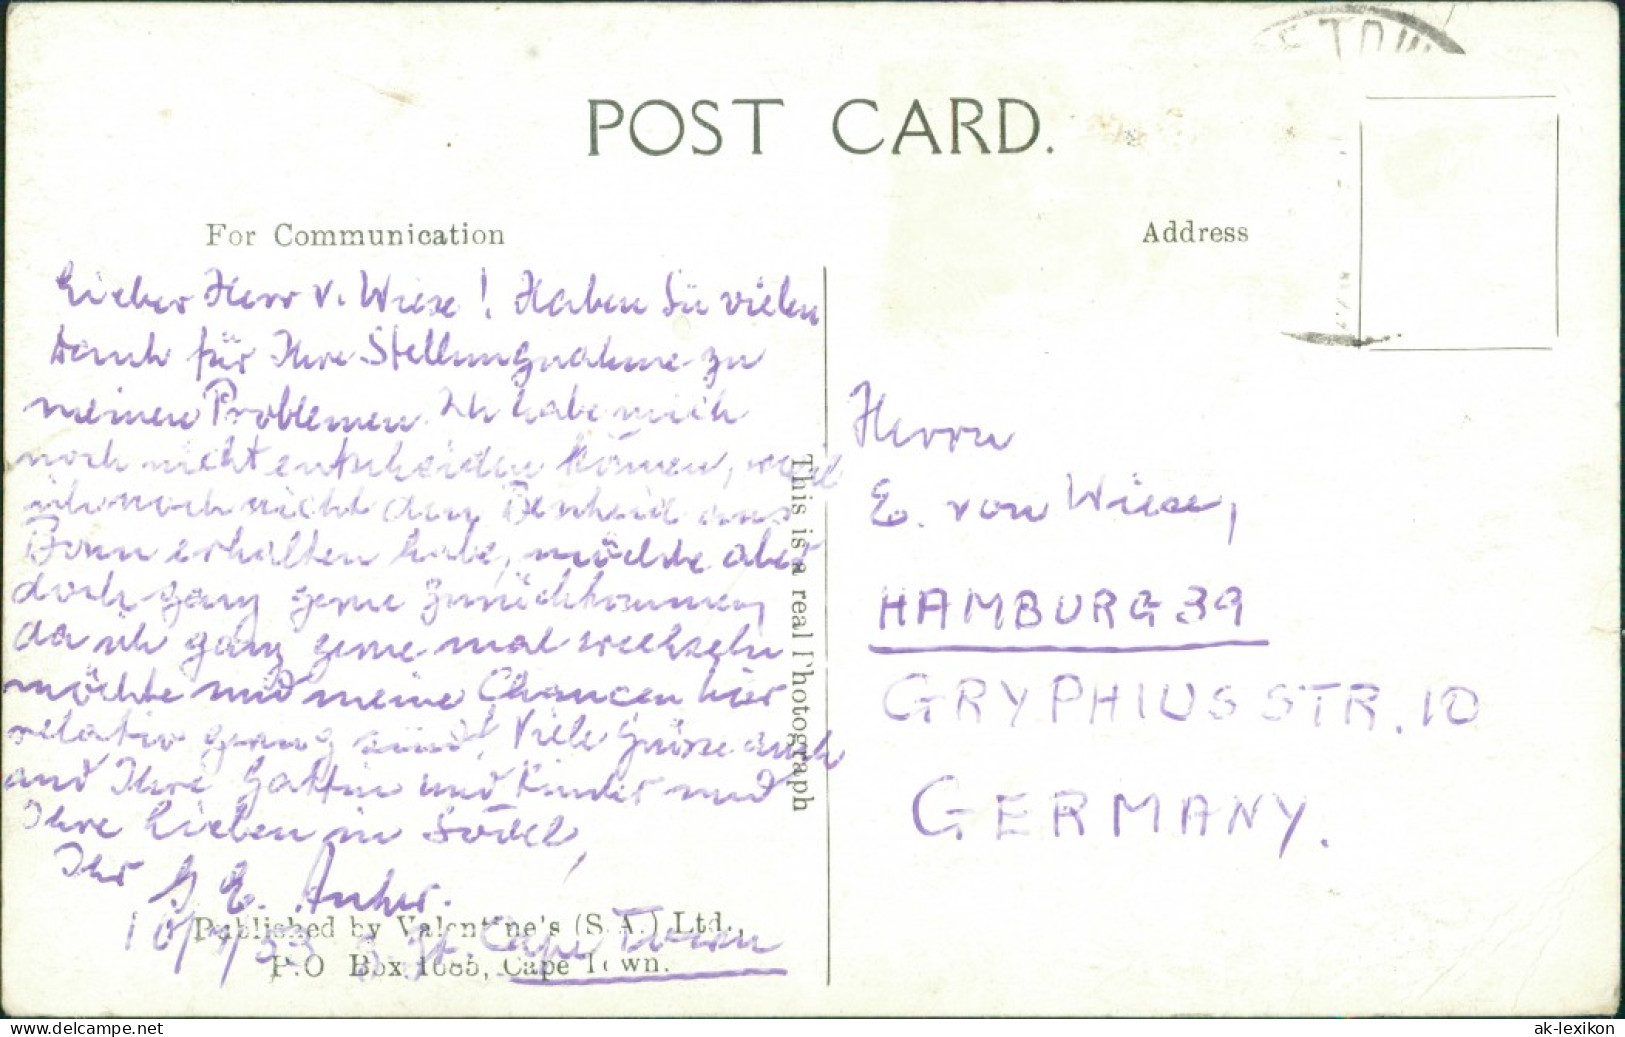 POST CARD.
For Communication
Address
Lieber Herr v. Wiese! Haben Sie vielen
Dank für Ihre Stellungnahme zu
meinen Problemen. Ich habe mich
noch nicht entscheiden können, weil
ich noch nicht den Bescheid aus
Bonn erhalten habe, möchte aber
doch ganz gerne zurückkommen,
da ich ganz gerne mal wechseln
möchte und meine Chancen hier
relativ gering sind. Viele Grüsse auch
and Ihre Gattin und Kinder und
Ihre Lieben in
Ihr
Published by Valentine's (S.A.) Ltd.,
P.O Box 1685, Cape Town.
Cape Town
This is a real Photograph
Herrn
E. von Wiese,
HAMBURG 39
GRYPHIUSSTR. 10
GERMANY.
ak-ansichtskarten.de
ak-lexikon